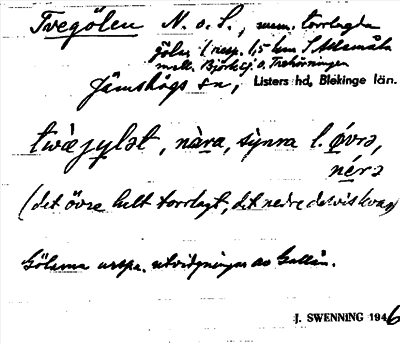 Tvegölen N. o. S., num. torrlagda
gölar 1 resp. 1,5 km S Ulsmåla
mell. Björksj. o. Trehörningen
Jämshögs sn, Listers hd, Blekinge län.
twàjylət, nàra, synra l. øvrə,
nérə
(det övre helt torrlagt, det nedre delvis kvar)
Gölarna urspr. utvidgningar av Gallån.
J. SWENNING 1946